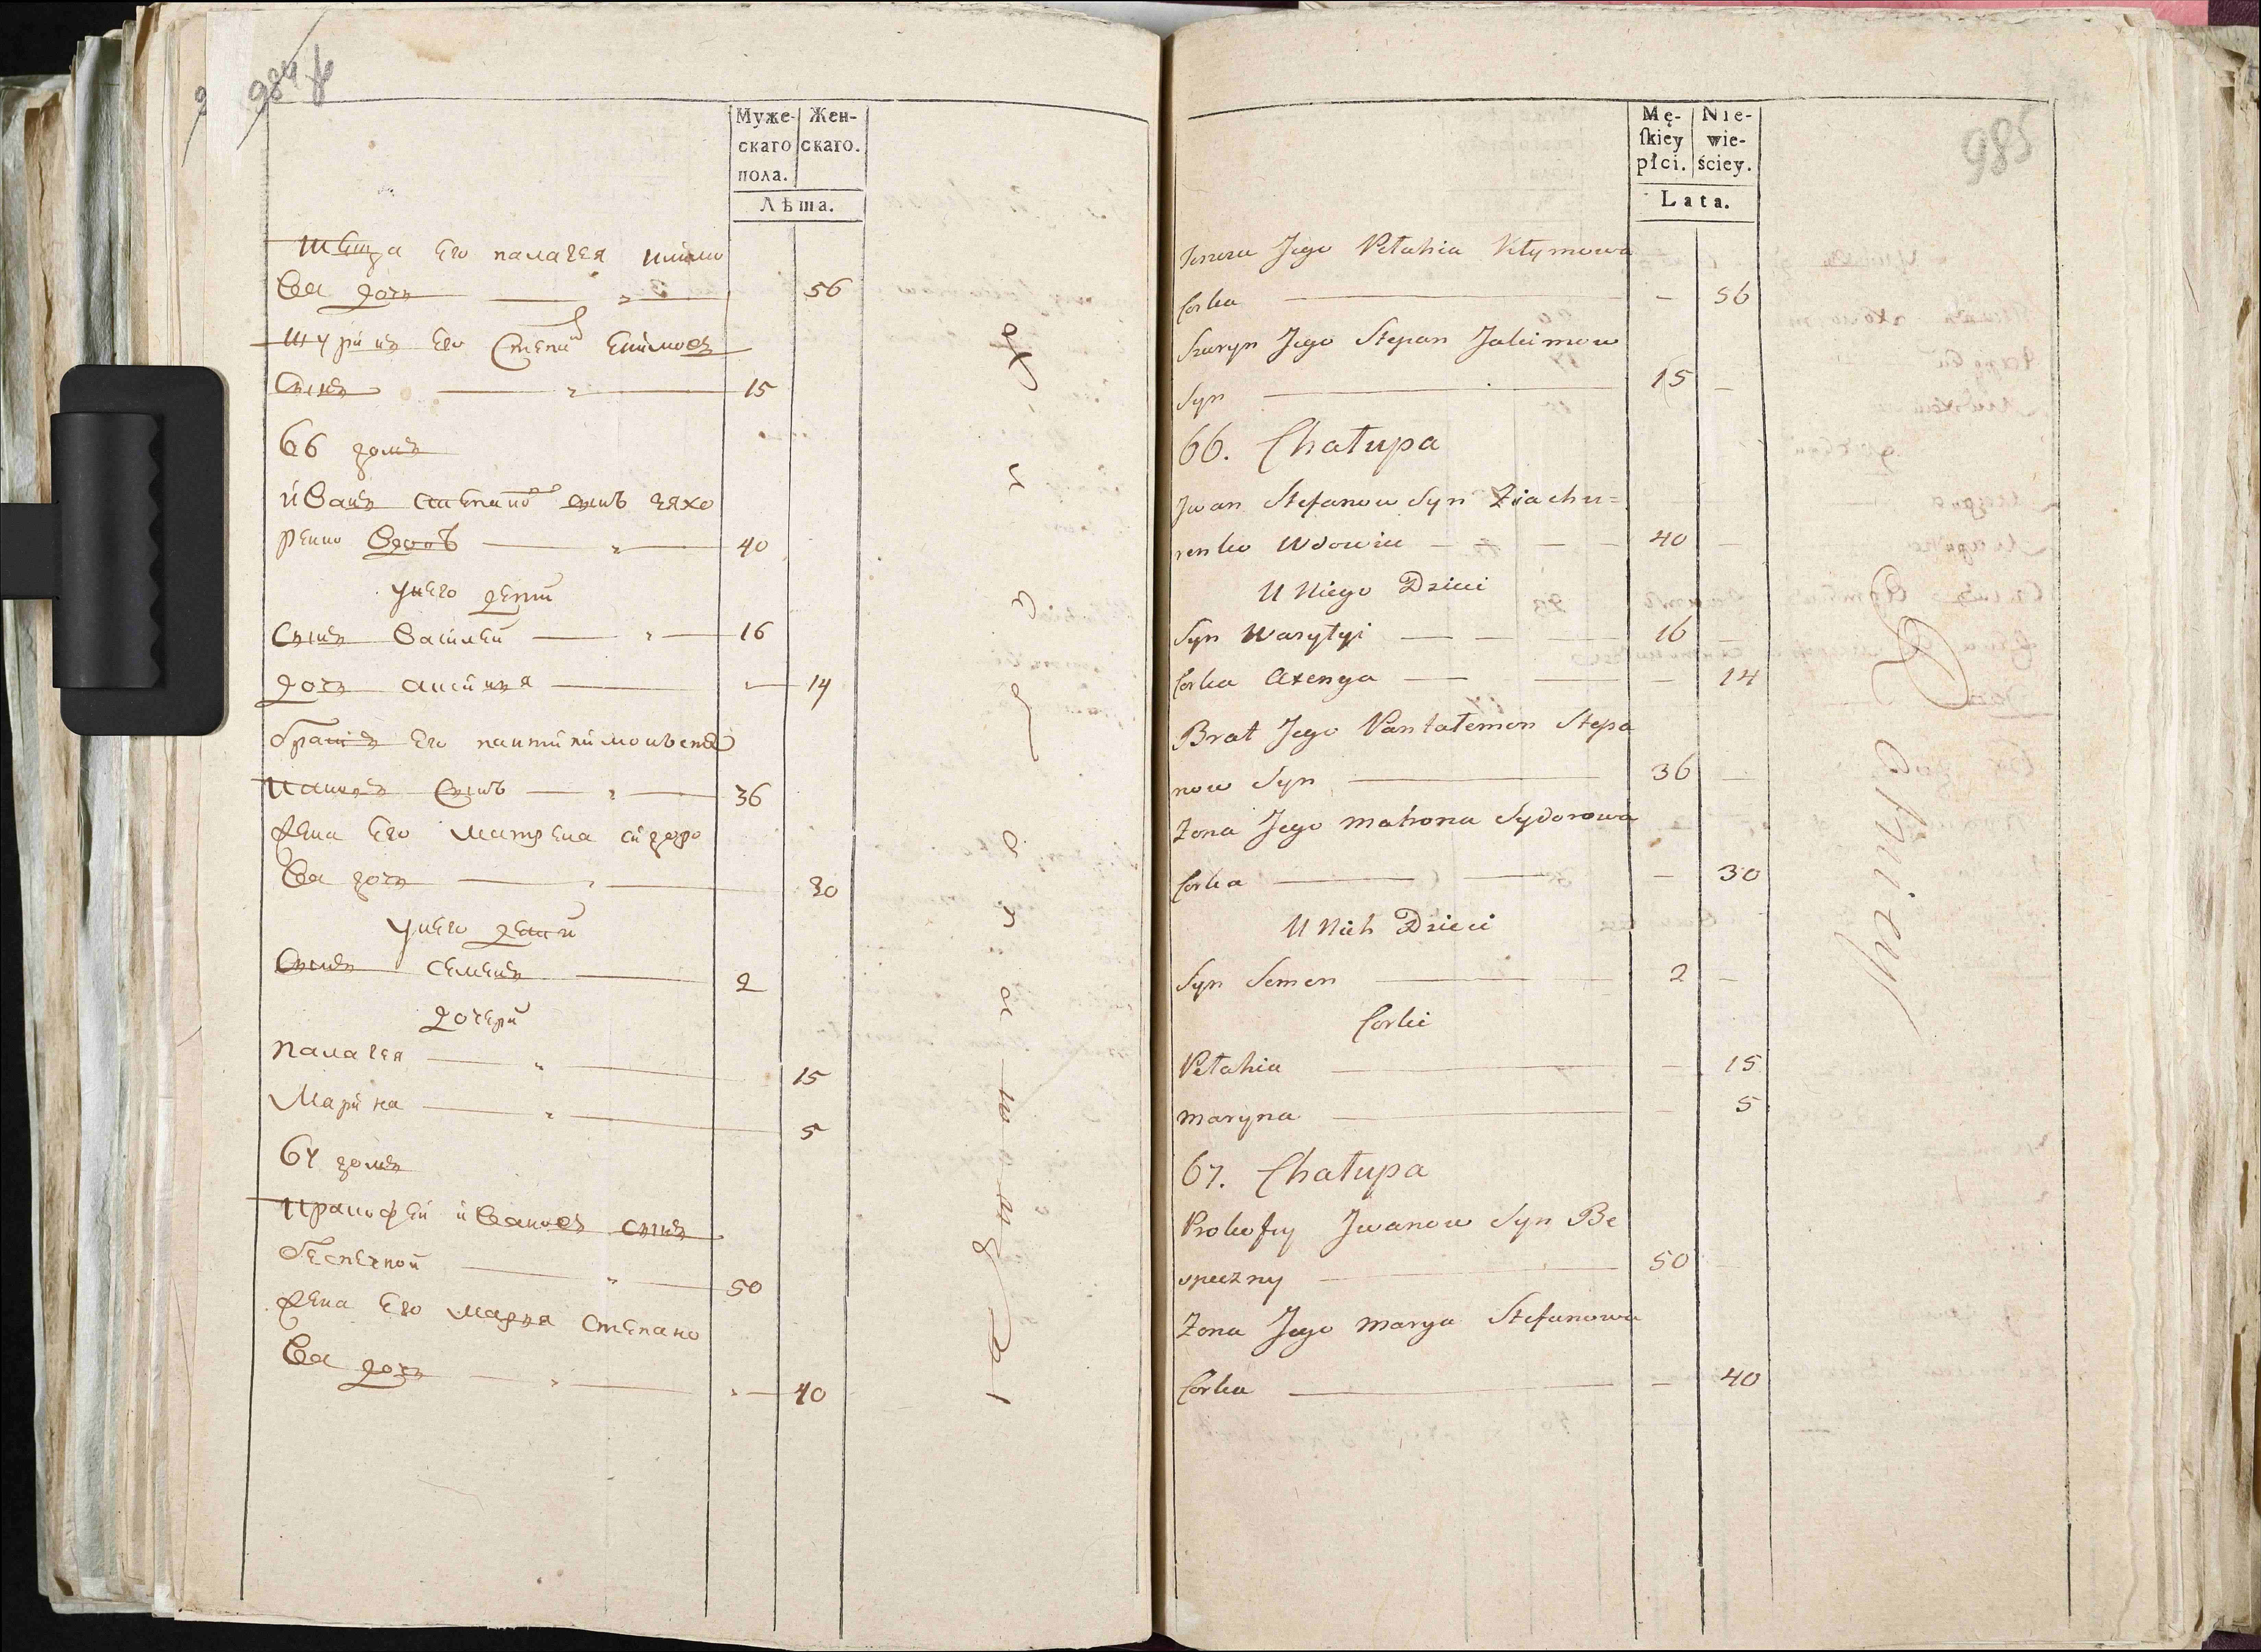 984
Муже-
скаго
пола.
Жен-
скаго.
Лѣта.
теща его палагея климо
ва дочь 56
шуринъ его степанъ екимовъ
сынъ 15
66 домъ
иванъ степановъ сынъ зяхо
ренко вдовъ 40
у него дети
сынъ василей 16
дочь аксинья 14
братъ его пантилимонъ степа
новъ сынъ 36
жена его матрена сидоро
ва дочь 30
у него дети
сынъ семенъ 2
дочери
палагея 15
марина 5
67 домъ
пракофей ивановъ сынъ
беспечной 50
жена его марья степано
ва дочь 40
985
Mę-
skiey
płci.
Nie-
wie-
ściey.
Lata.
Jego Pełahia Kłymowa
Corka — 56
Szuryn Jego Stepan Jakimow
Syn 15 —
66. Chałupa
Jwan Stefanow Syn Ziachu=
renko Wdowiec 40 —
U Niego Dzieci
Syn Wasyłyi 16 —
Corka Axenya — 14
Brat Jego Pantałemon Stepa
now Syn 36 —
Zona Jego Matrona Sydorowa
Corka — 30
U Nich Dzieci
Syn Semen 2 —
Corki
Pełahia — 15
Maryna — 5
67. Chałupa
Prokofiy Jwanow Syn Be
speczny 50
Zona Jego Marya Stefanowa
Corka — 40